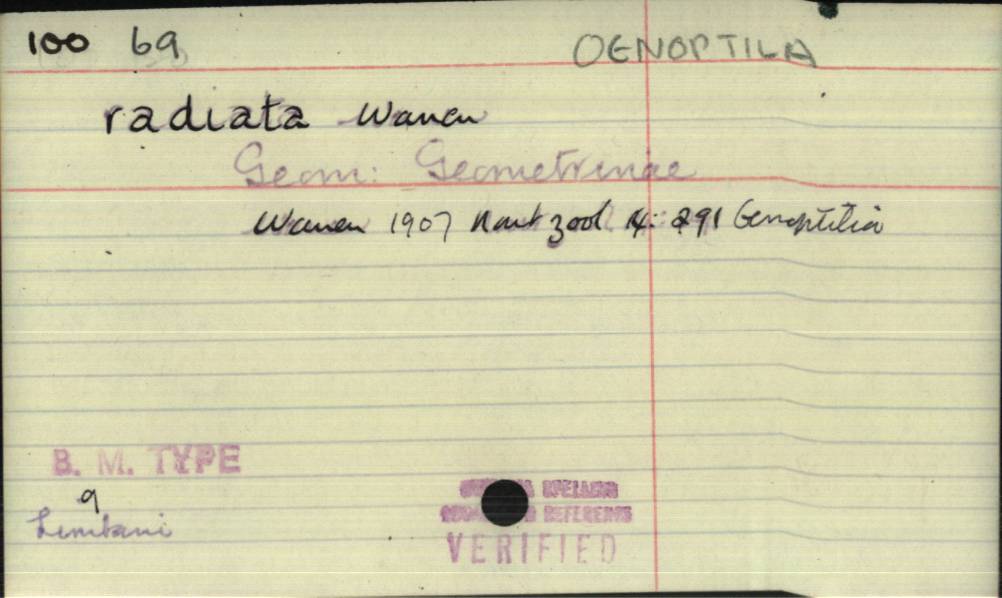 100 69 OENOPTILA
radiata Warren
Geom: Geometrinae
Warren 1907 Novit zool 14: 291 Oenoptila
B. M. TYPE
SPELLING
REFERENCE
VERIFIED